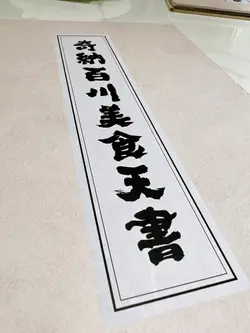 奇納百川美食天書